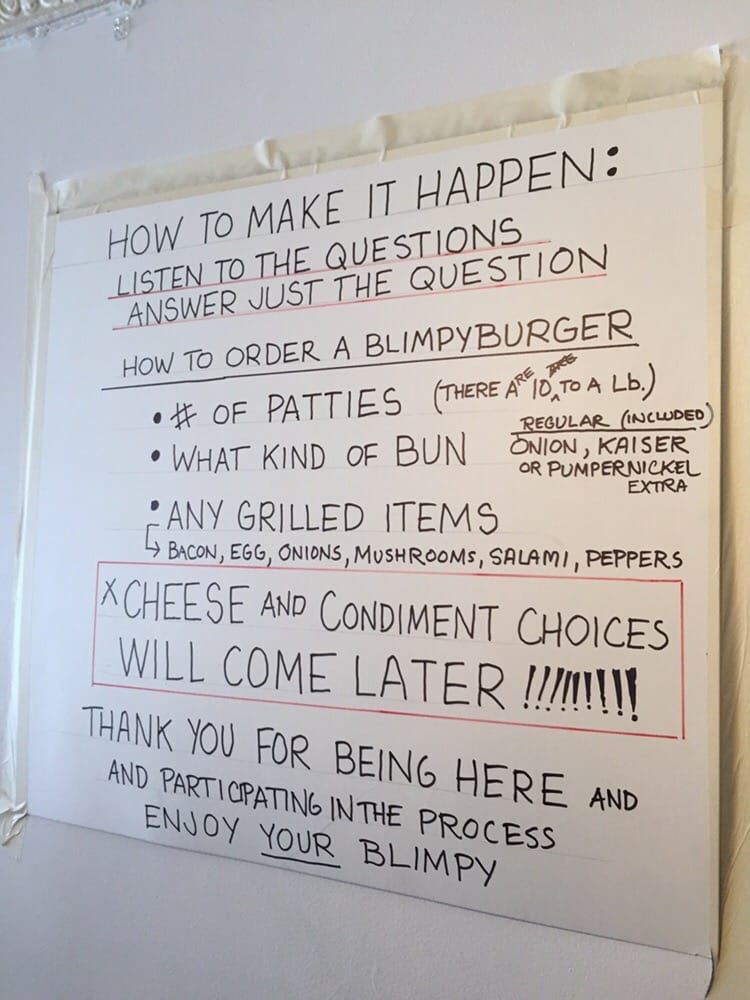 HOW TO MAKE IT HAPPEN:
LISTEN TO THE QUESTIONS
ANSWER JUST THE QUESTION
HOW TO ORDER A BLIMPYBURGER
• # OF PATTIES (THERE ARE 10 TO A Lb.)
• WHAT KIND OF BUN
REGULAR (INCLUDED)
ONION, KAISER
OR PUMPERNICKEL
EXTRA
• ANY GRILLED ITEMS
↳ BACON, EGG, ONIONS, MUSHROOMS, SALAMI, PEPPERS
X CHEESE AND CONDIMENT CHOICES
WILL COME LATER !!!!!!!!!
THANK YOU FOR BEING HERE AND
AND PARTICIPATING IN THE PROCESS
ENJOY YOUR BLIMPY